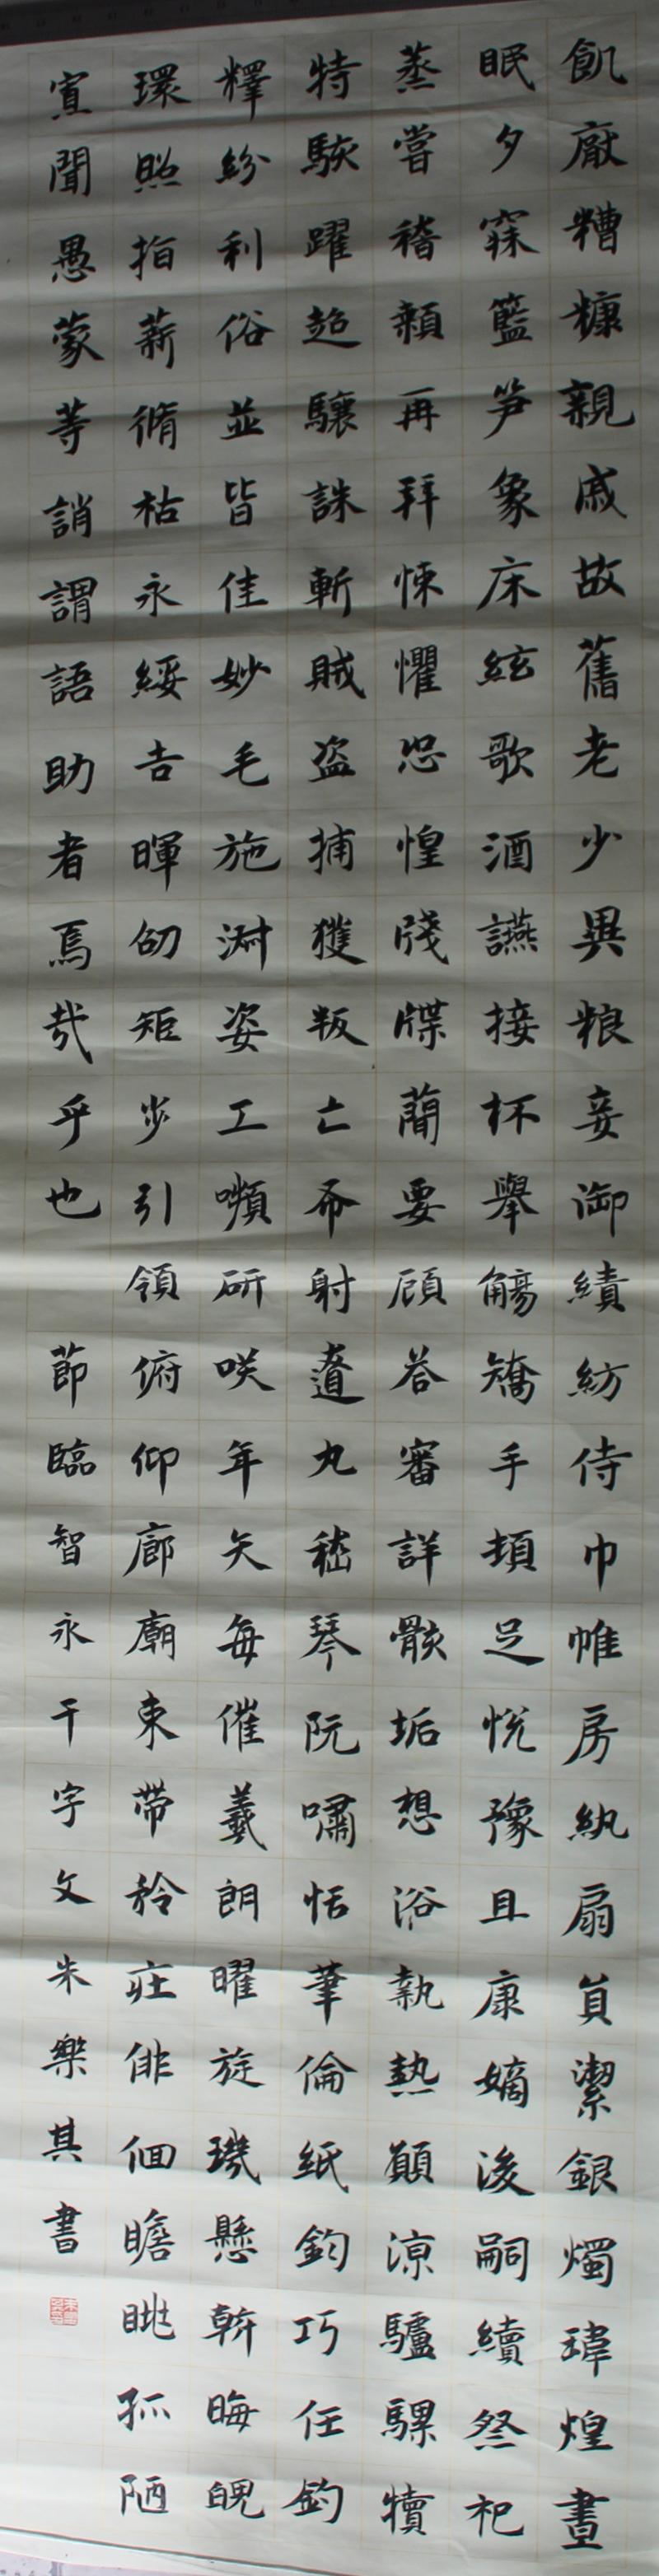 飢厭糟糠親戚故舊老少異粮妾御績紡侍巾帷房紈扇員潔銀燭瑋煌晝
眠夕寐籃笋象床絃歌酒讌接杯舉觴矯手頓足悅豫且康嫡後嗣續祭祀
蒸嘗稽顙再拜悚懼恐惶牋牒簡要顧荅審詳骸垢想浴執熱願涼驢騾犢
特駭躍超驤誅斬賊盜捕獲叛亡布射遼丸嵇琴阮嘯恬筆倫紙鈞巧任釣
釋紛利俗並皆佳妙毛施淑姿工嚬研咲年矢每催羲朗曜旋璣懸斡晦魄
環照指薪脩祜永綏吉暉劭矩步引領俯仰廊廟束帶矜莊俳佪瞻眺孤陋
寡聞愚蒙等誚謂語助者焉哉乎也 節臨智永千字文朱樂其書